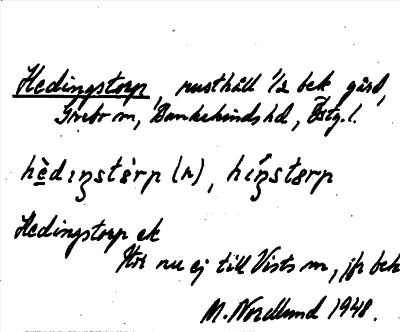 Hedingstorp, rusthåll 1/2 bek gård,
Grebo sn, Bankekinds hd, Östg. l.
hèdıŋstɵ̀rp (n), hıŋ́stɵrp
Hedingstorp ek
Hör nu ej till Vists sn, jfr bek
M. Nordlund 1948.